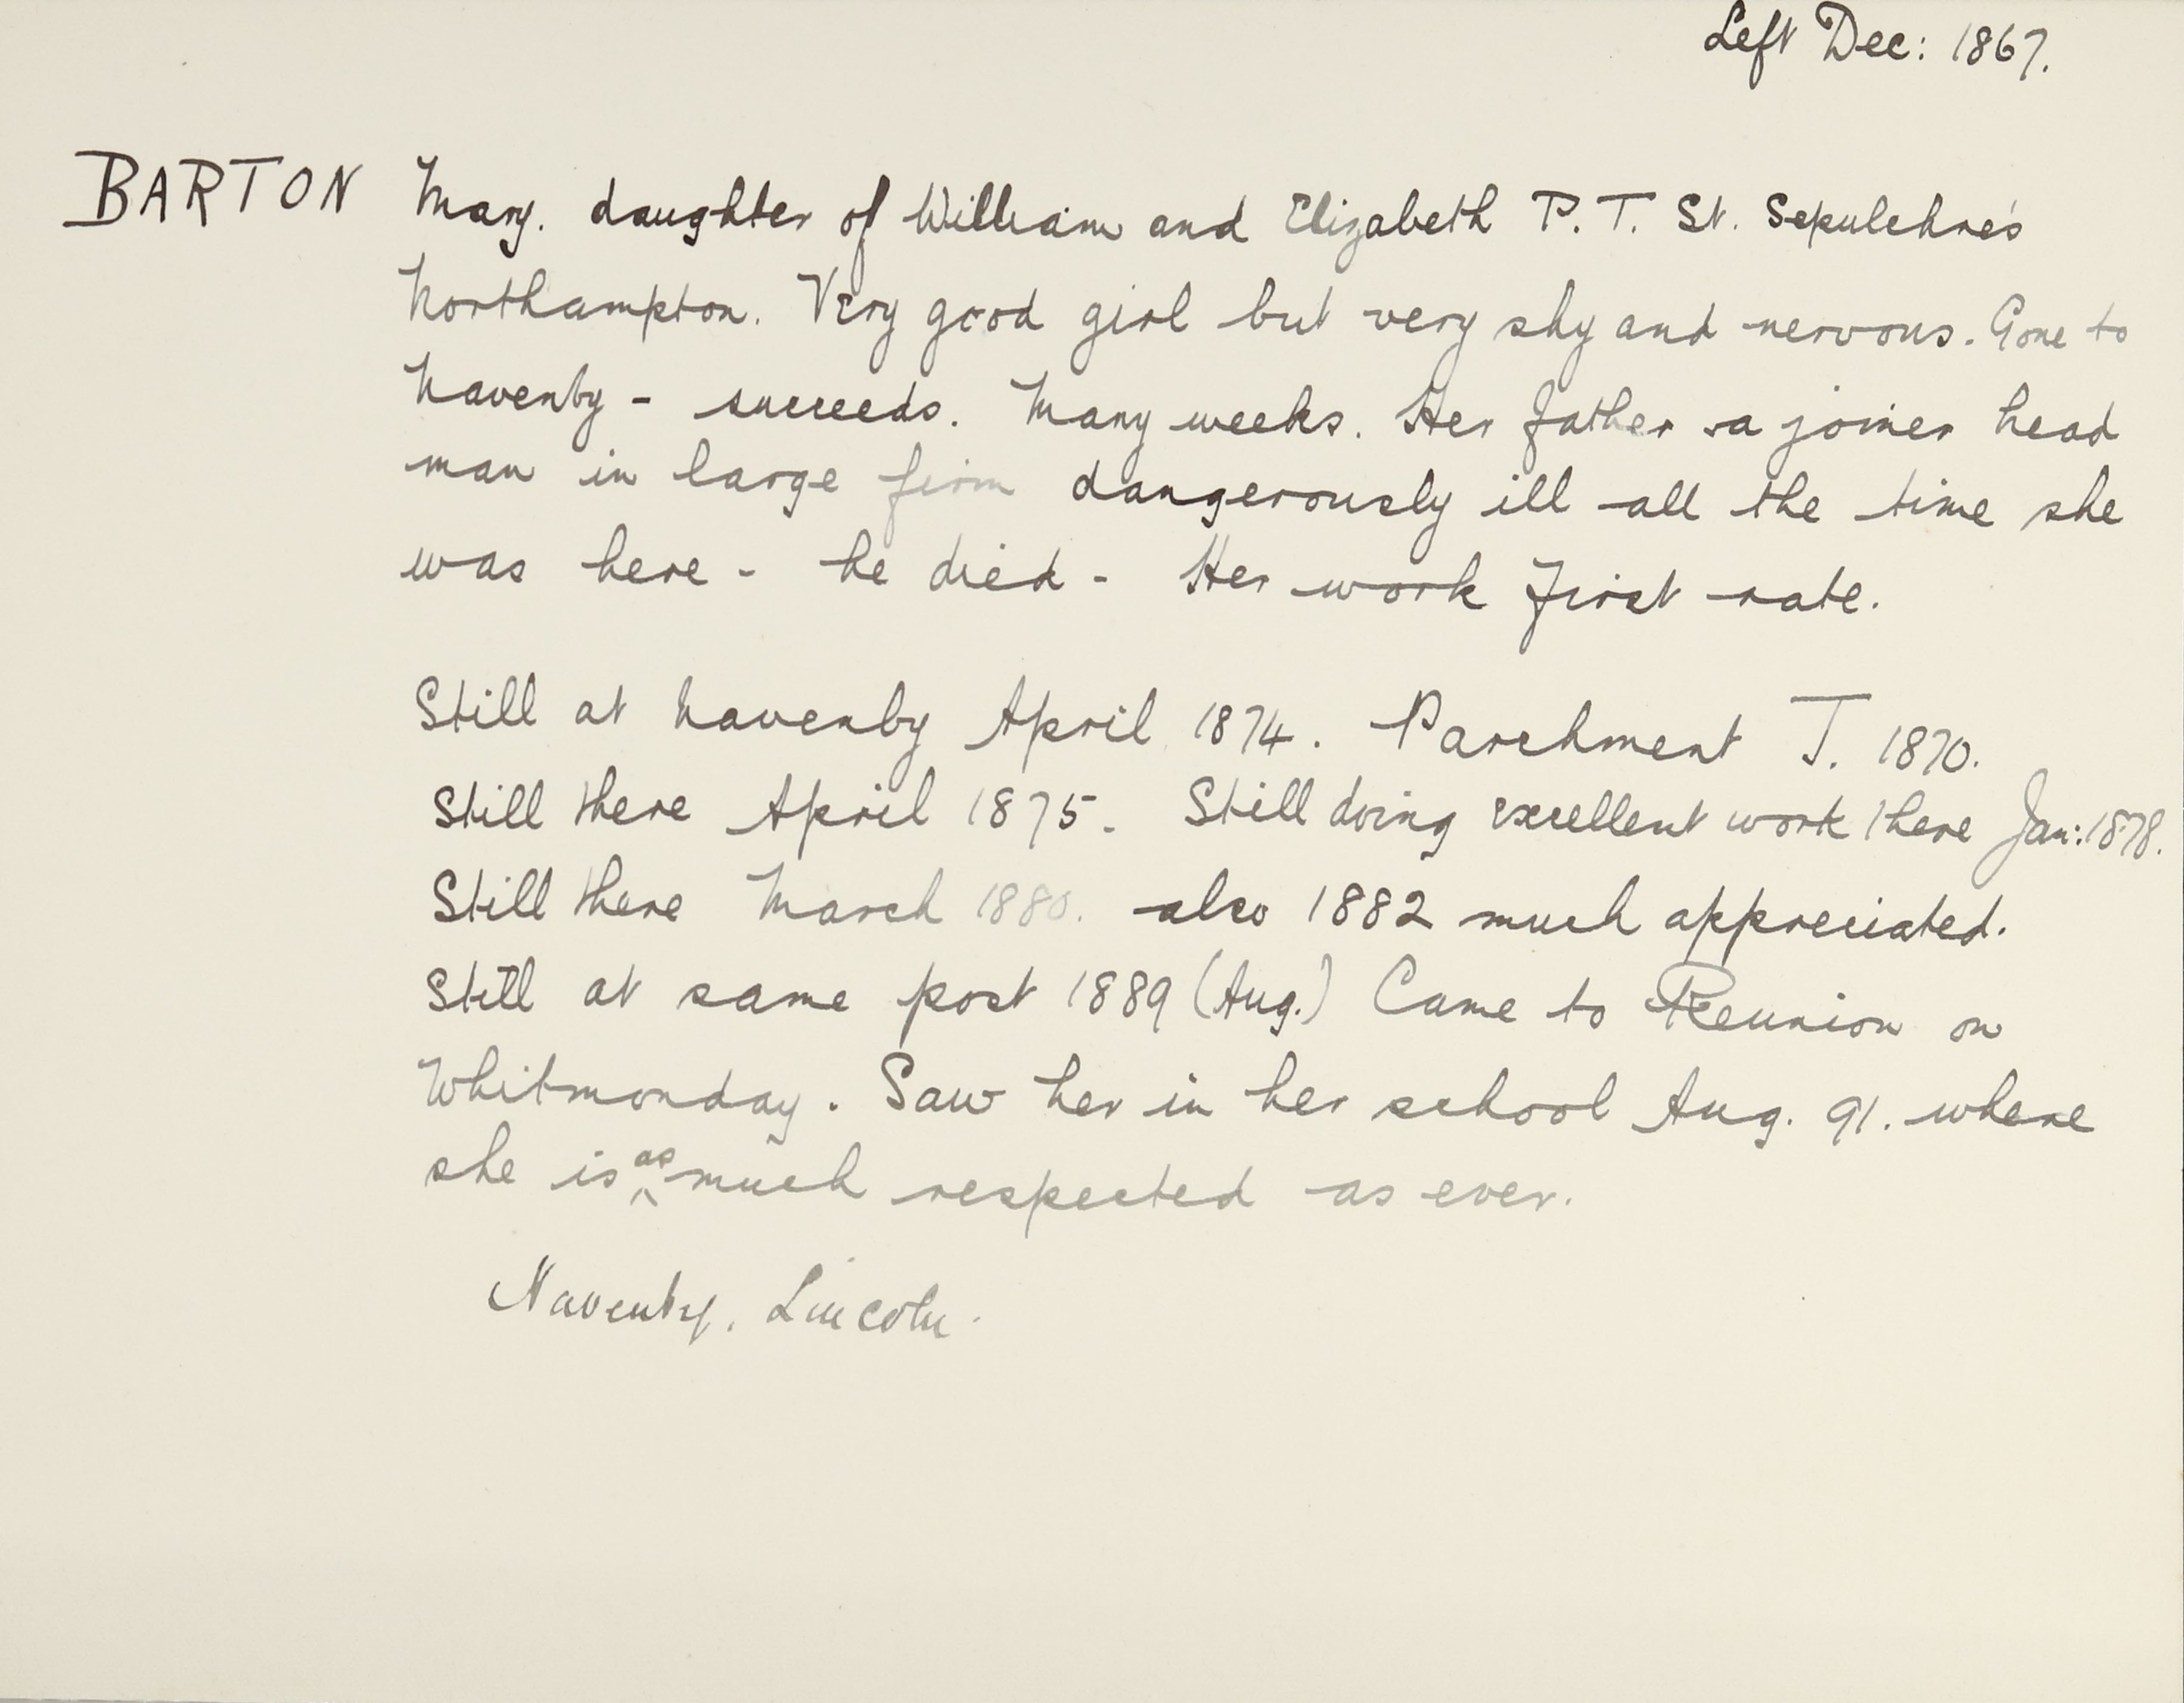 Left Dec: 1867.
BARTON Mary. daughter of William and Elizabeth P.T. St. Sepulchre's
Northampton. Very good girl but very shy and nervous. Gone to
Navenby - succeeds. Many weeks. Her father a joiner head
man in large firm dangerously ill all the time she
was here - he died - Her work first rate.
Still at Navenby April 1874. Parchment T. 1870.
Still there April 1875. Still doing excellent work there Jan: 1878.
Still there March 1880. also 1882 much appreciated.
Still at same post 1889 (Aug.) Came to Reunion on
Whitmonday. Saw her in her school Aug. 91. where
she is as much respected as ever.
Navenby, Lincoln.